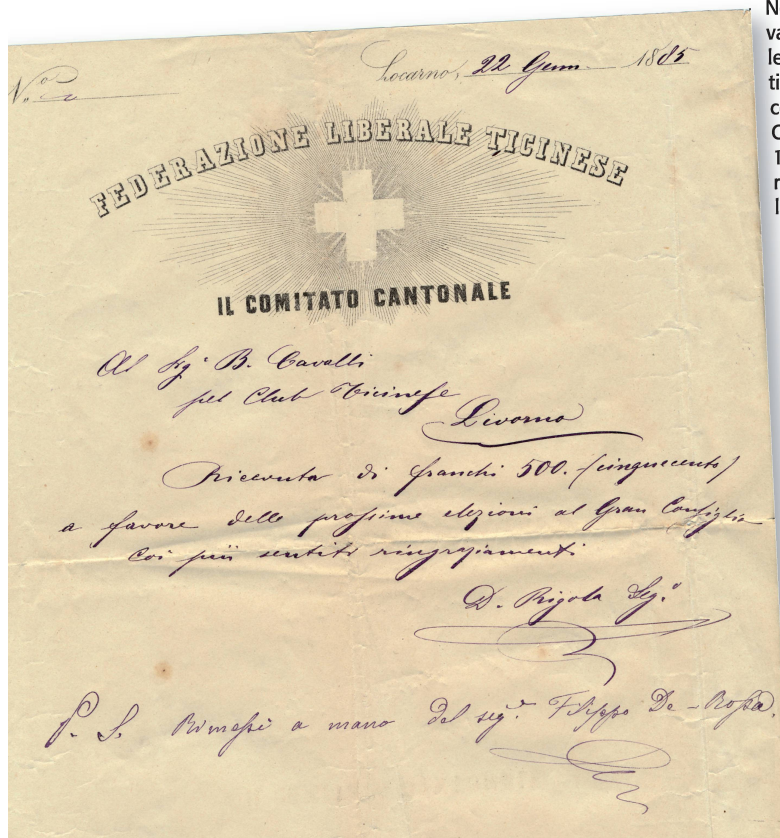 N.º
Locarno, 22 Genn. 1885
FEDERAZIONE LIBERALE TICINESE
IL COMITATO CANTONALE
Al Sigʳ B. Cavalli
pel Club Ticinese
Livorno
Ricevuta di franchi 500. (cinquecento)
a favore delle prossime elezioni al Gran Consiglio
Coi più sentiti ringraziamenti
D. Rigola Segº
P. S. Rimessi a mano del sigʳ Filippo De-Rossa.
N
va
le
ti
c
1
r
l